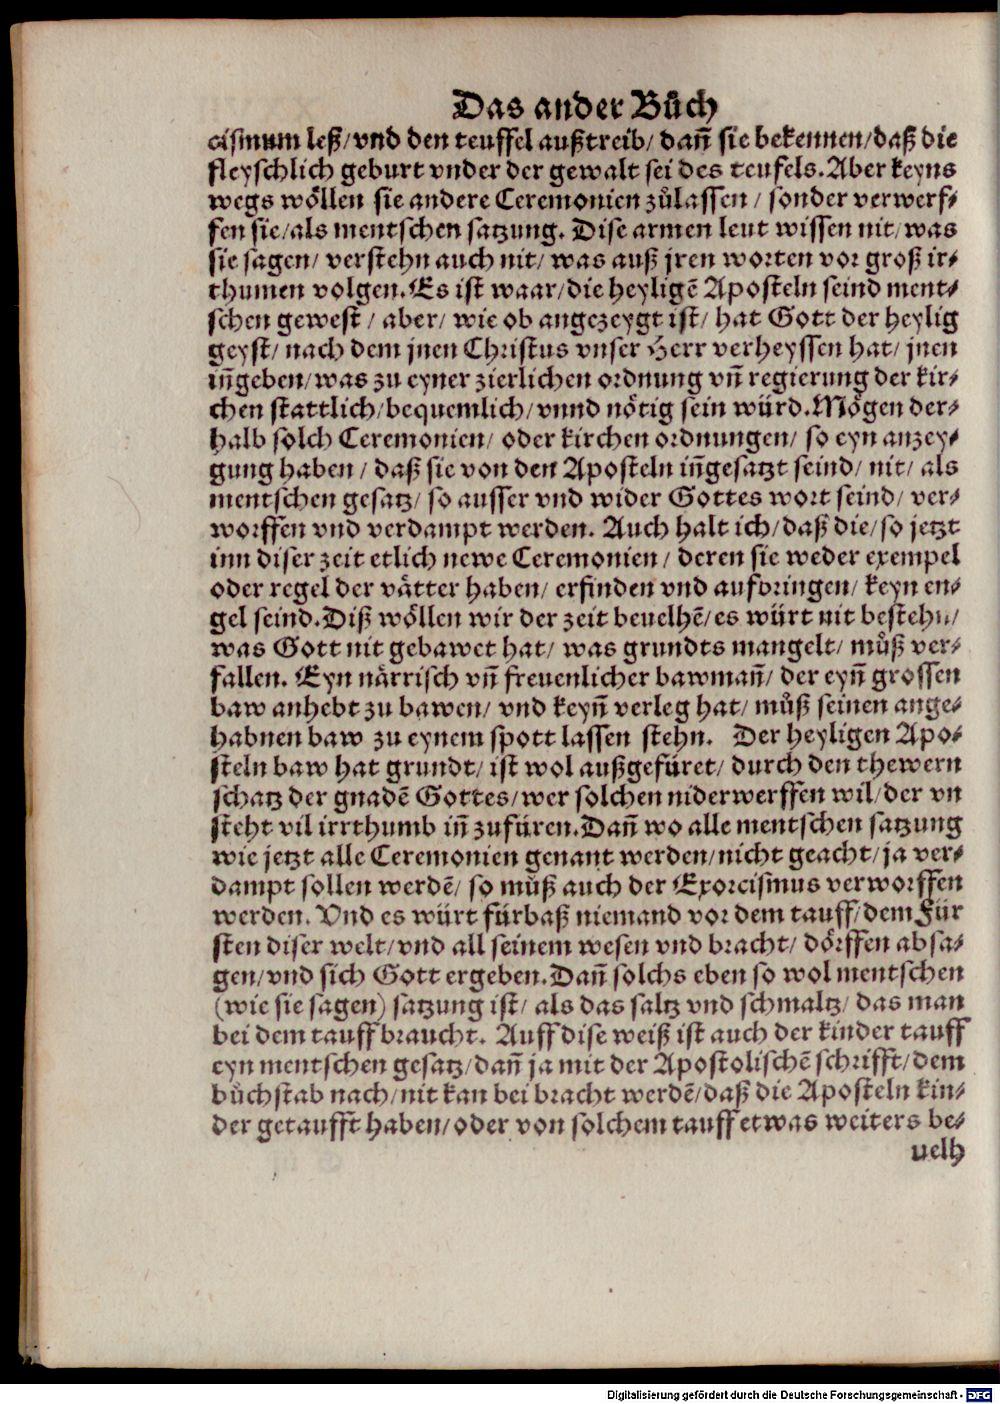 Das ander Bůch
cismum leß/vnd den teuffel außtreib/ dañ sie bekennen/daß die
fleyschlich geburt vnder der gewalt sei des teufels. Aber keyns
wegs wöllen sie andere Ceremonien zůlassen / sonder verwerf-
fen sie/als mentschen satzung. Dise armen leut wissen nit/was
sie sagen/ verstehn auch nit/ was auß jren worten vor groß ir-
thumen volgen. Es ist waar/die heyligē Aposteln seind ment-
schen gewest / aber/ wie ob angezeygt ist/ hat Gott der heylig
geyst/ nach dem jnen Christus vnser Herr verheyssen hat/ jnen
iñgeben/was zu eyner zierlichen ordnung vñ regierung der kir-
chen stattlich/bequemlich/vnnd nötig sein würd. Mögen der-
halb solch Ceremonien/ oder kirchen ordnungen/ so eyn anzey-
gung haben / daß sie von den Aposteln iñgesatzt seind/ nit/ als
mentschen gesatz/ so ausser vnd wider Gottes wort seind/ ver-
worffen vnd verdampt werden. Auch halt ich/daß die/so jetzt
inn diser zeit etlich newe Ceremonien / deren sie weder exempel
oder regel der vätter haben/ erfinden vnd aufbringen/ keyn en-
gel seind. Diß wöllen wir der zeit beuelhē/es würt nit bestehn/
was Gott nit gebawet hat/ was grundts mangelt/ můß ver-
fallen. Eyn närrisch vñ freuenlicher bawmañ/ der eyñ grossen
baw anhebt zu bawen/ vnd keyñ verleg hat/ můß seinen ange-
habnen baw zu eynem spott lassen stehn. Der heyligen Apo-
steln baw hat grundt/ ist wol außgefüret/ durch den thewern
schatz der gnadē Gottes/wer solchen niderwerffen wil/der vn
steht vil irrthumb iñ zufüren. Dañ wo alle mentschen satzung
wie jetzt alle Ceremonien genant werden/nicht geacht/ja ver-
dampt sollen werdē/ so můß auch der Exorcismus verworffen
werden. Vnd es würt fürbaß niemand vor dem tauff/dem Für
sten diser welt/vnd all seinem wesen vnd bracht/ dörffen absa-
gen/vnd sich Gott ergeben. Dañ solchs eben so wol mentschen
(wie sie sagen) satzung ist/ als das saltz vnd schmaltz/ das man
bei dem tauff braucht. Auff dise weiß ist auch der kinder tauff
eyn mentschen gesatz/dañ ja mit der Apostolischē schrifft/dem
bůchstab nach/nit kan bei bracht werdē/daß die Aposteln kin-
der getaufft haben/oder von solchem tauff etwas weiters be-
uelh
Digitalisierung gefördert durch die Deutsche Forschungsgemeinschaft - DFG